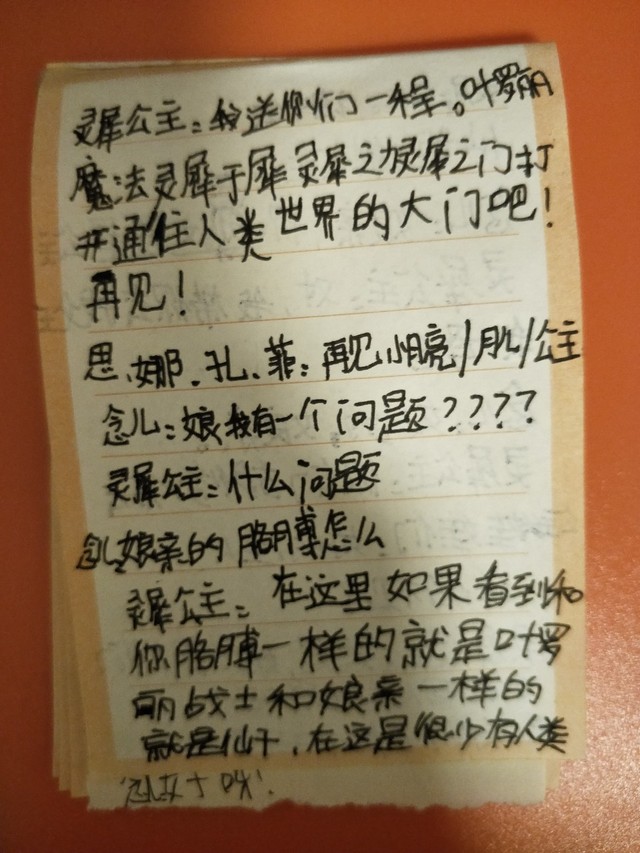 灵犀公主：我送你们一程。叶罗丽
魔法灵犀于犀灵犀之灵犀之门打
开通往人类世界的大门吧！
再见！
思、娜、孔、菲：再见小亮/月/公主
念儿：娘我有一个问题？？？？
灵犀公主：什么问题
念儿娘亲的胳膊怎么
灵犀公主：在这里如果看到和
你胳膊一样的就是叶罗
丽战士和娘亲一样的
就是仙子，在这是很少有人类